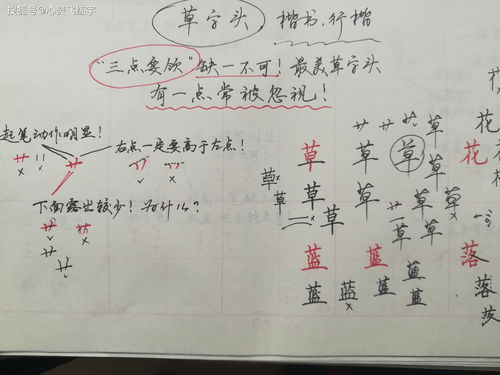 搜狐号@心灵飞练字
草字头 楷书、行楷
"三点要领"缺一不可！最美草字头
有一点常被忽视！
起笔动作明显！
右点一定要高于左点！
下面露出较少！为什么？
草 草 草 草 花
草 草 草 草 草
草 草 草 草
蓝 蓝 蓝 落
蓝 蓝 蓝 蓝 落